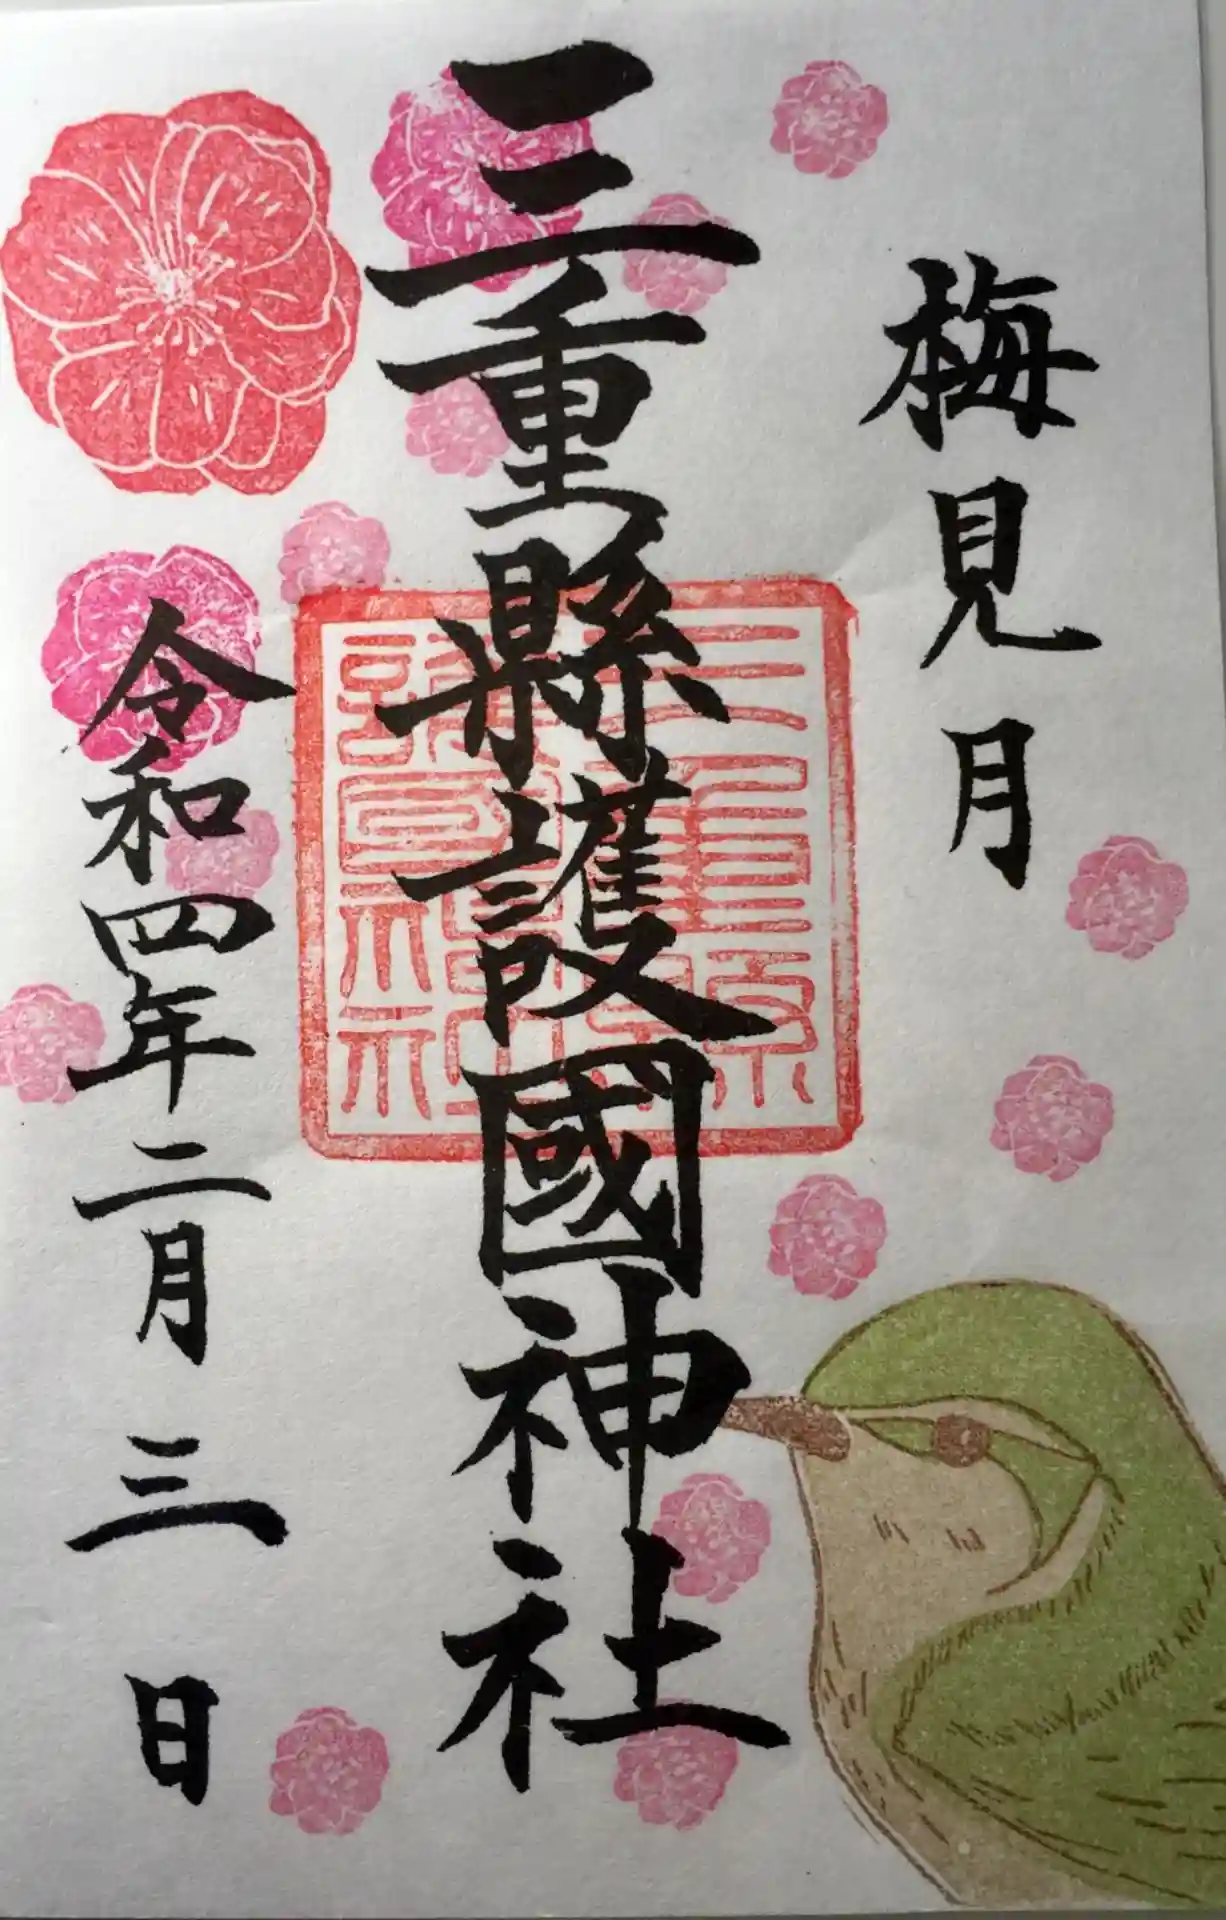 梅見月
三重縣護國神社
令和四年二月三日
三重県護国神社